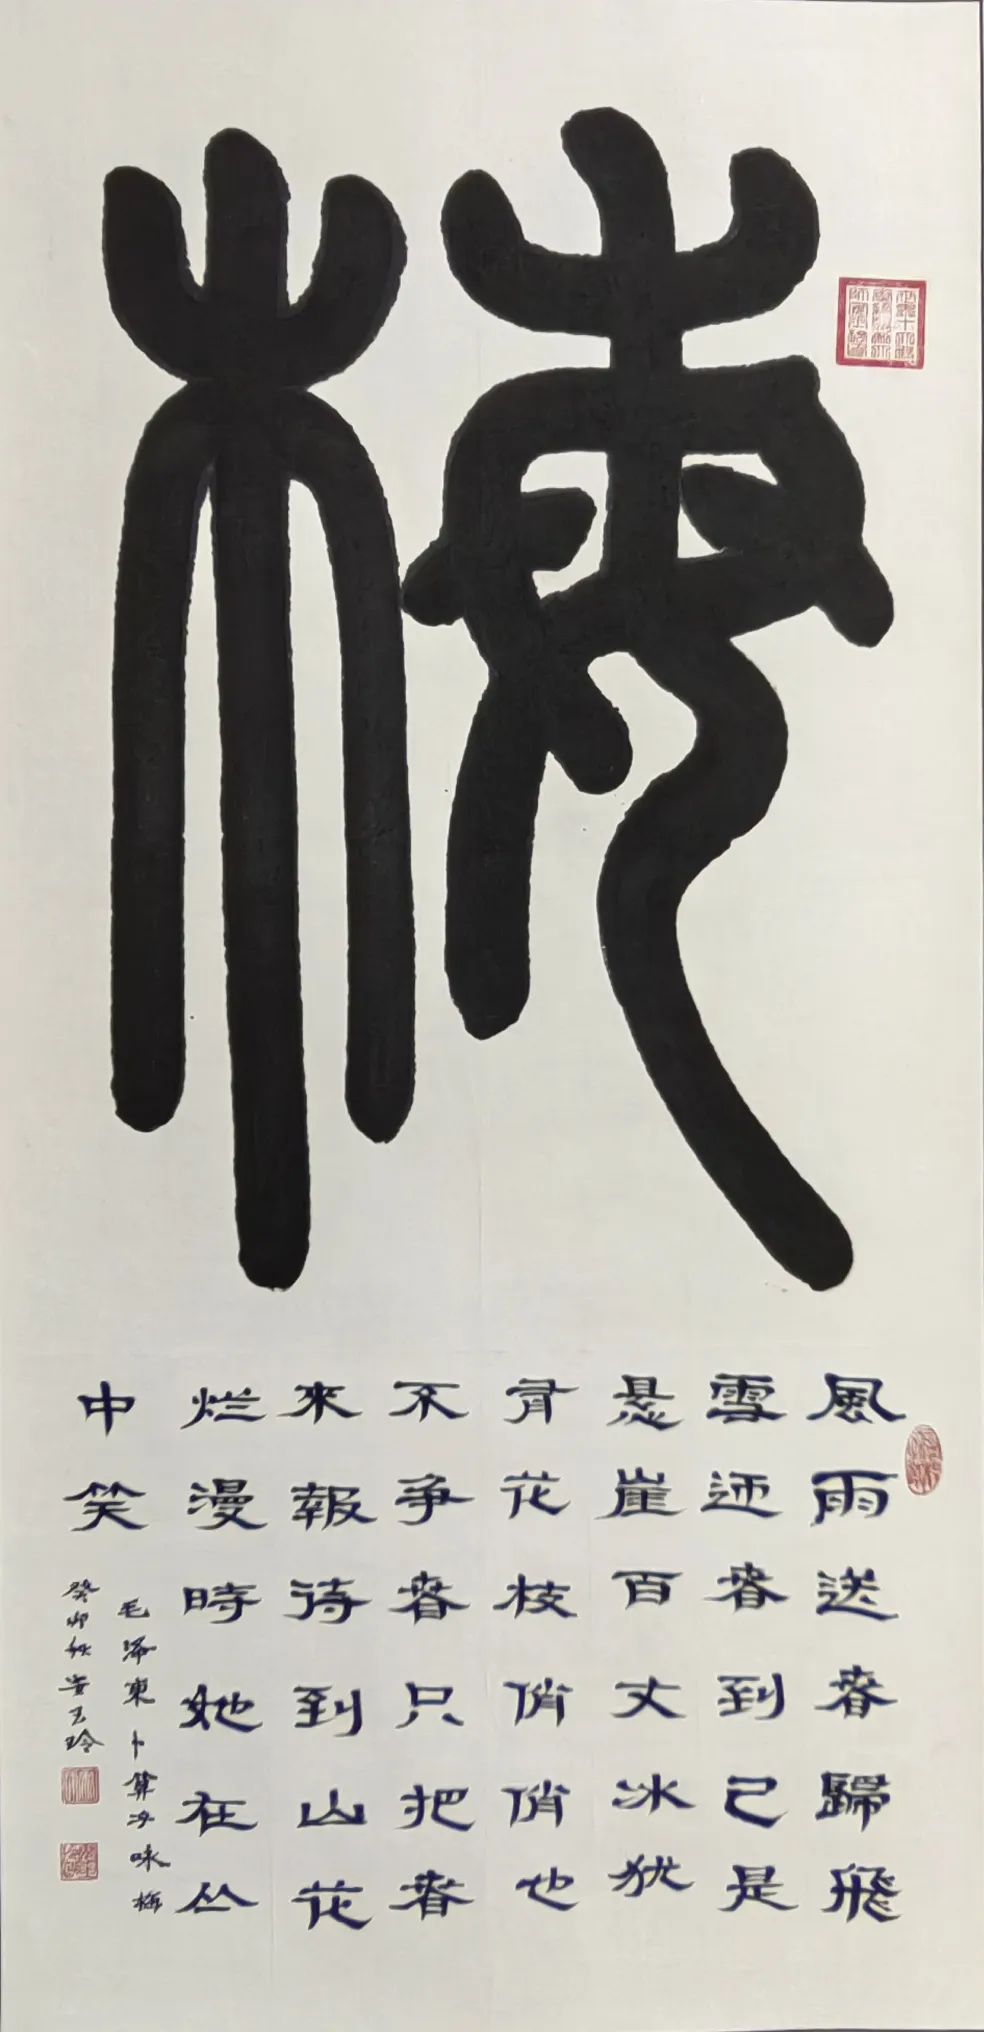 梅
風雨送春歸飛
雪迎春到已是
悬崖百丈冰犹
有花枝俏俏也
不争春只把春
來報待到山花
烂漫時她在丛
中笑
毛泽東卜算子咏梅
癸卯秋安玉玲